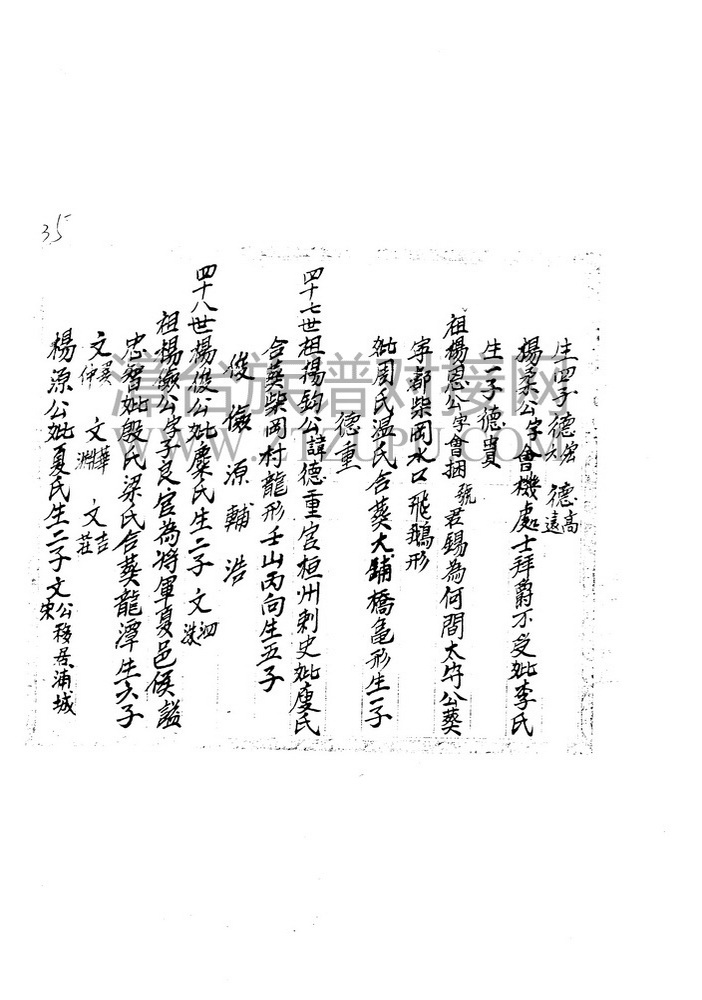 35
生四子德宏德六德高德遠
楊柔公字會機處士拜爵不受妣李氏
生一子德貴
祖楊恩公字會捆號君錫為何間太守公葬
寧都柴岡水口飛鵝形
妣周氏温氏合葬大鋪橋龜形生一子
德重
四十七世祖楊鈞公諱德重官桓州刺史妣廖氏
合葬柴岡村龍形壬山丙向生五子
俊儉源輔浩
四十八世楊俊公妣糜氏生二子文泗
祖楊儉公字子良官為將軍夏邑侯謚
忠智妣殷氏梁氏合葬龍潭生六子
文英仲文華淵文吉莊
楊源公妣夏氏生二子文公移居浦城
淄台族譜对接网
WWW.JIZUPU.COM